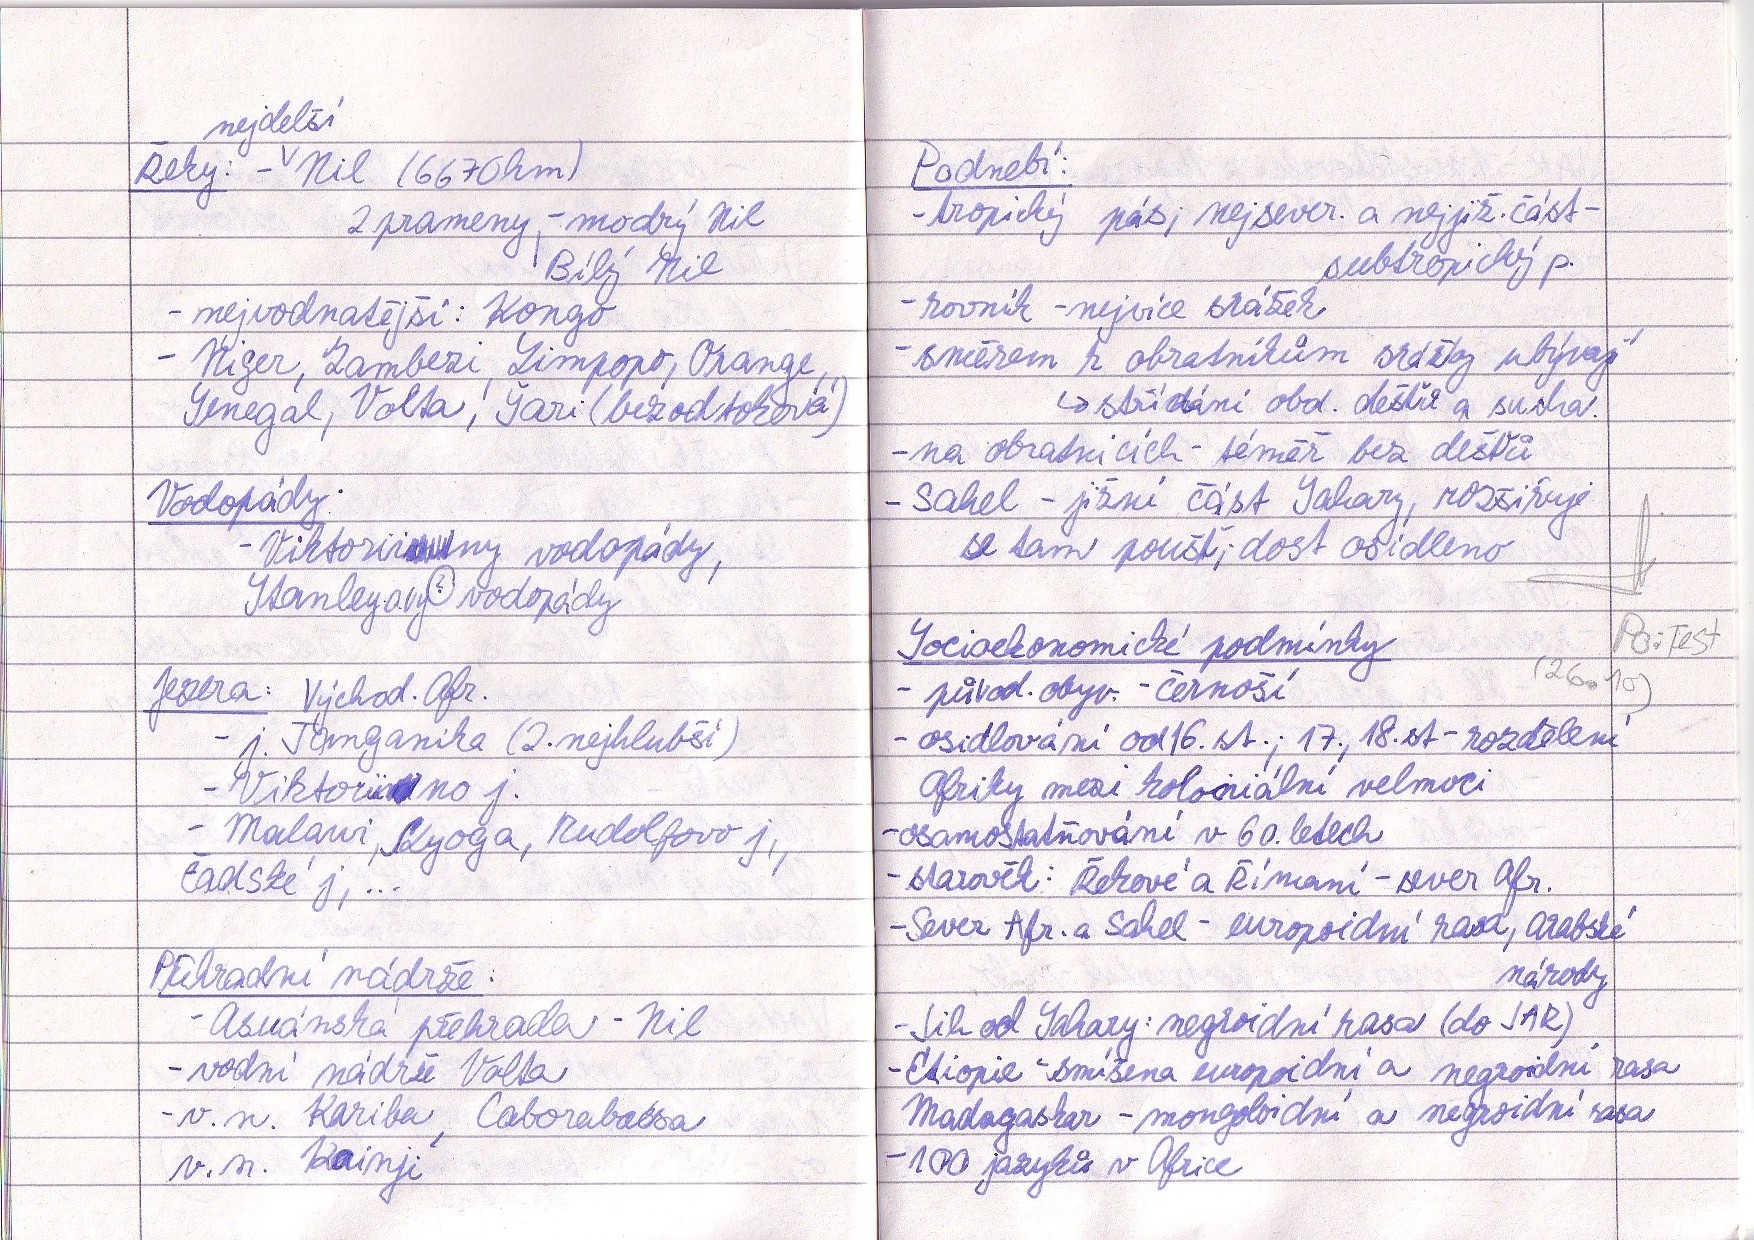 nejdelší
Řeky: - Nil (6670km)
2 prameny - modrý Nil
Bílý Nil
- nejvodnatější: Kongo
- Niger, Zambezi, Limpopo, Orange,
Senegal, Volta, Šari (bezodtoková)
Vodopády:
- Viktoriiny vodopády,
Stanleyovy vodopády
Jezera: Východ. Afr.
- j. Tanganika (2. nejhlubší)
- Viktoriino j.
- Malawi, Kyoga, Rudolfovo j.,
Čadské j, ...
Přehradní nádrže:
- Asuánská přehrada - Nil
- vodní nádrž Volta
- v. n. Kariba, Caborabassa
v. n. Kainji
Podnebí:
- tropický pás; nejsever. a nejjiž. část -
subtropický p.
- rovník - nejvíce srážek
- směrem k obratníkům srážky ubývají
↳ střídání obd. dešťů a sucha.
- na obratnících - téměř bez dešťů
- Sahel - jižní část Sahary, rozšiřuje
se tam poušť; dost osídleno
Socioekonomické podmínky
Po: Test
(26. 10)
- původ. obyv. - černoši
- osidlování od 16. st.; 17., 18. st - rozdělení
Afriky mezi koloniální velmoci
- osamostatňování v 60. letech
- starověk: Řekové a Římani - sever Afr.
- Sever Afr. a Sahel - europoidní rasa, arabské
národy
- Jih od Sahary: negroidní rasa (do JAR)
- Etiopie - smíšena europoidní a negroidní rasa
Madagaskar - mongoloidní a negroidní rasa
- 100 jazyků v Africe